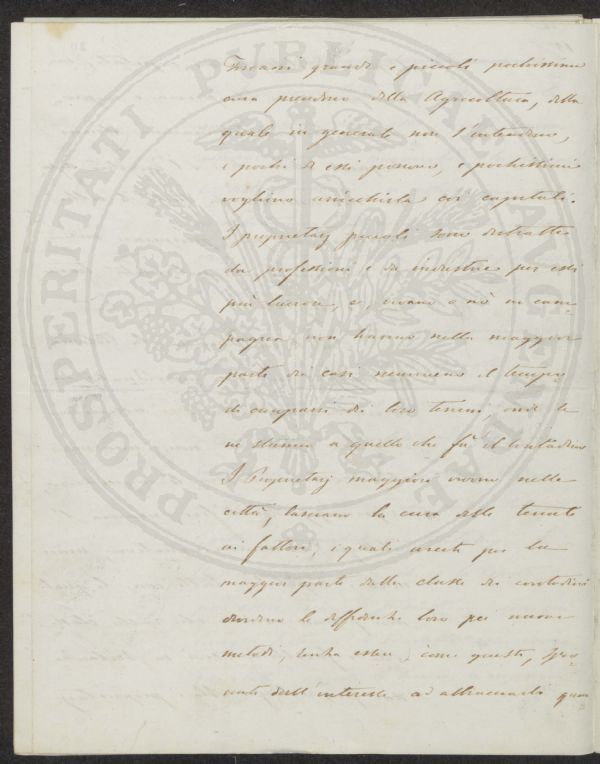 PROSPERITATI PUBLICAE AUGENDAE
Toscani grandi e piccoli pochissima
cura prendono della Agricoltura, della
quale in generale non s'intendono,
e pochi di essi possono, e pochissimi
vogliono arricchirla coi capitali.
I proprietarj piccoli sono distratti
da professioni e da industrie per essi
più lucrose, e, vivano o nò in cam=
pagna, non hanno nella maggior
parte dei casi nemmeno il tempo
di occuparsi dei loro terreni, onde se
ne stanno a quello che fà il Contadino
I Proprietarj maggiori vivono nelle
città, lasciano la cura delle tenute
ai fattori, i quali usciti per la
maggior parte dalla classe dei contadini
dividono le diffidenze loro pei nuovi
metodi, senza essere, come questi, spro=
nati dall'interesse ad abbracciarli quan